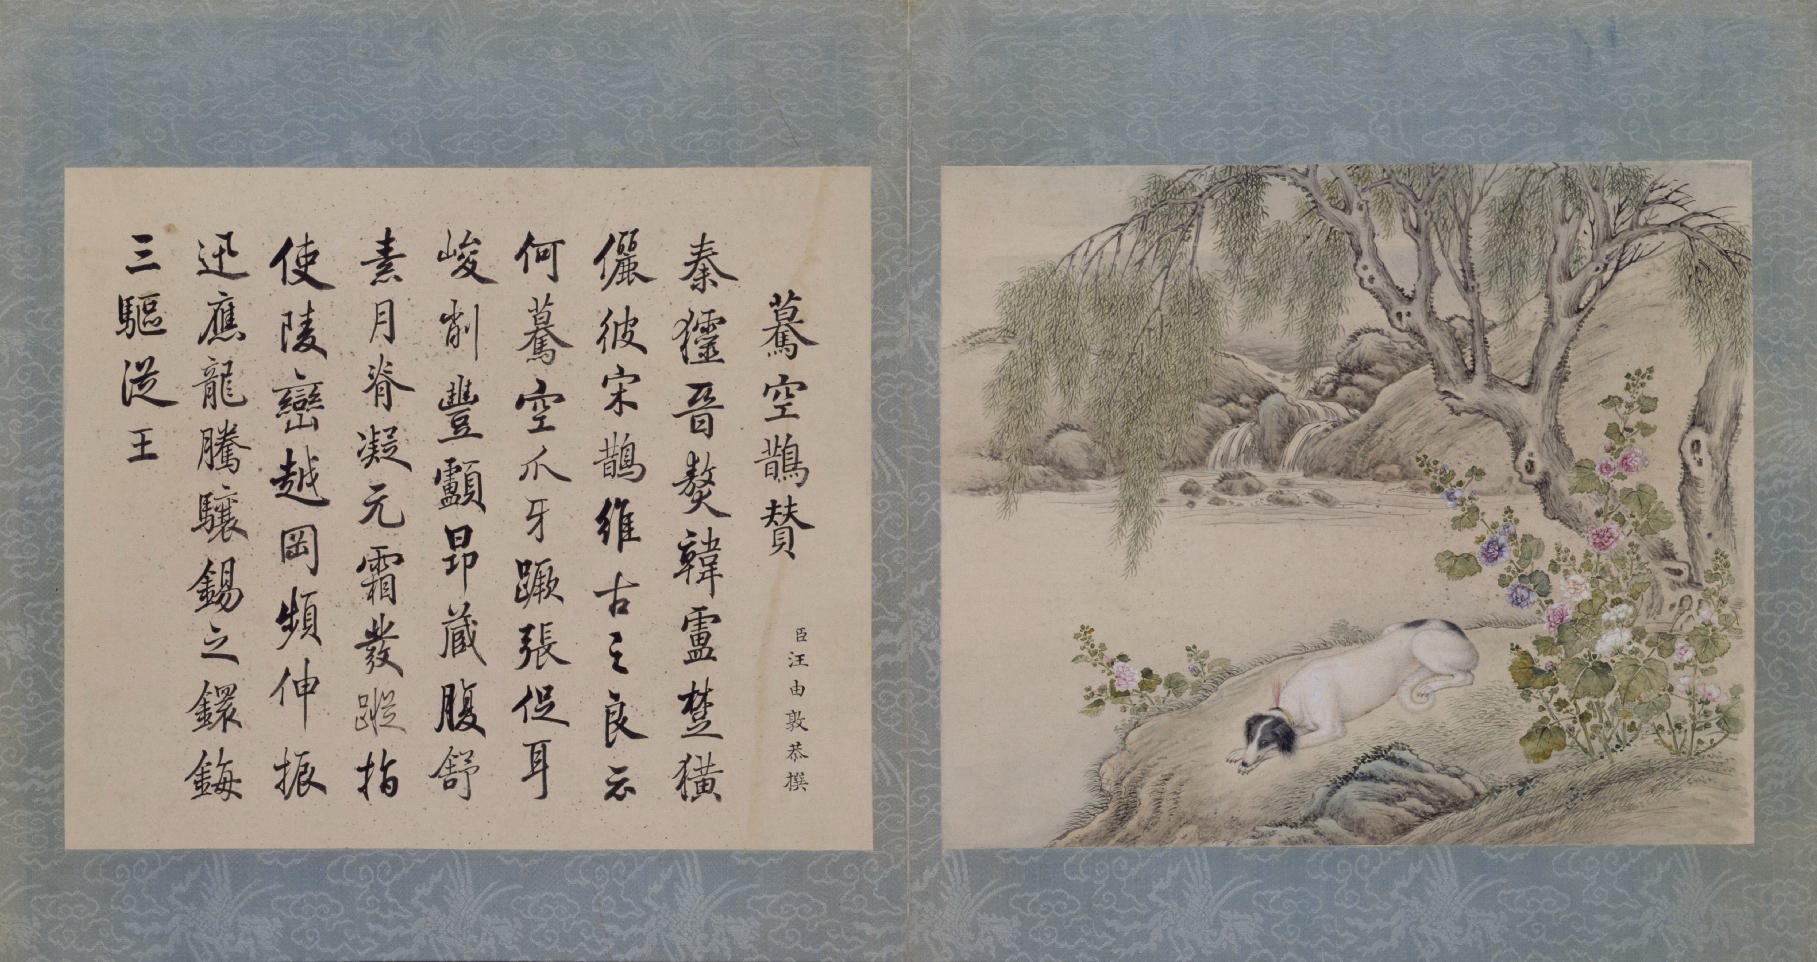 驀空鵲赞
臣汪由敦恭撰
秦獹晉獒韓盧楚獚
儷彼宋鵲維古之良云
何驀空爪牙蹶張促耳
峻削豐顱昂藏腹舒
素月脊凝元霜發蹤指
使陵巒越岡頻伸振
迅應龍騰驤錫之鐶鋂
三驅從王